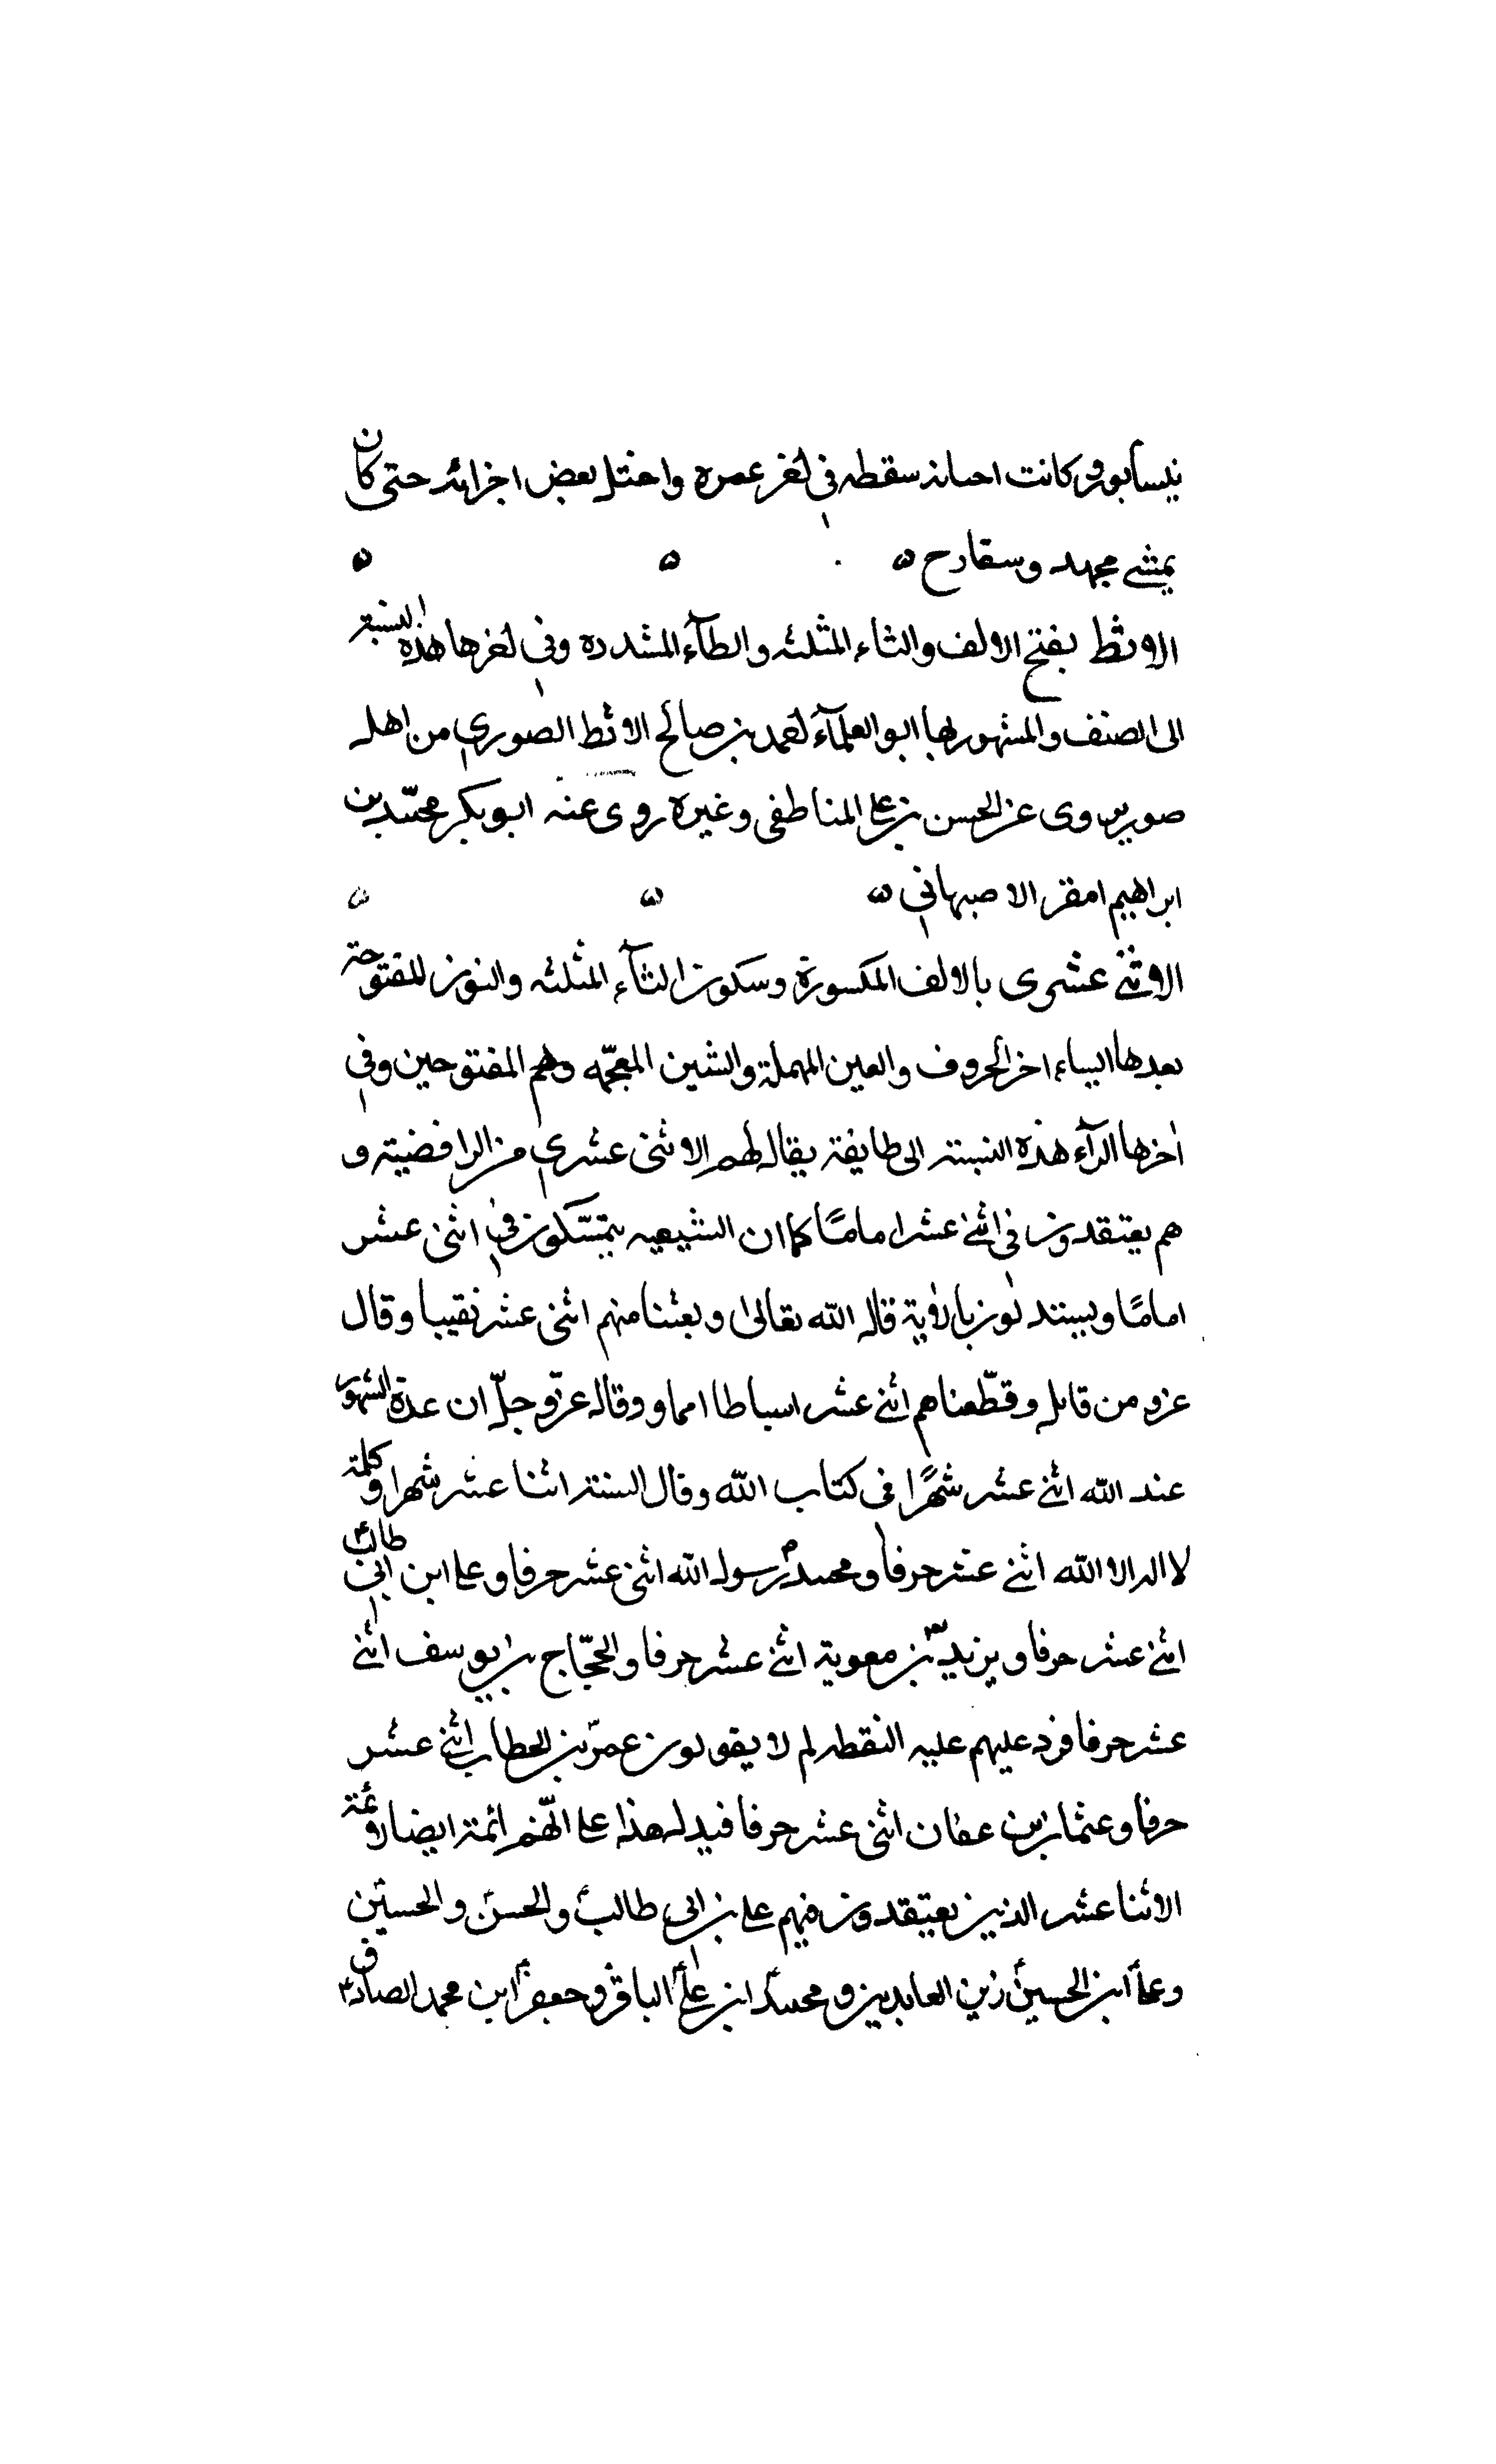 نيسابور وكانت احسانه سقطه في اخر عمره واختل بعض اجزائه حتى كان
يمشي مجهد وسقارح ۵ ۵ ۵
الاثط بفتح الالف والثاء المثلثه والطآء المشدده وفي اخرها هذه النسبة
الى الصنف والمشهور بها ابو العلآء احمد بن صالح الاثط الصوري من اهل
صور روى عن الحسن بن علي المناطفى وغيره روى عنه ابو بكر محمّد بن
ابراهيم امقر الاصبهاني ۵ ۵ ۵
الاثنى عشرى بالالف المكسورة وسكون الثآء المثلثه والنون المفتوحة
بعدها الياء اخر الحروف والعين المهملة والشين المعجّمه وهم المفتوحين وفي
اخرها الرآء هذه النسبة الى طايفة يقال لهم الاثنى عشري من الرافضية و
هم يعتقدون في اثنى عشر امامًا كما ان الشيعيه يتمسّكون في اثنى عشر
امامًا ويستدلون بالاية قال الله تعالى وبعثنا منهم اثنى عشر نقيبا وقال
عزو من قايل وقطّعناهم اثنى عشر اسباطا امما و وقال عزّ وجلّ ان عدة الشهور
عند الله اثنى عشر شهرًا في كتاب الله وقال السنة اثنا عشر شهرا وكلمة
لا اله الا الله اثنى عشر حرفا ومحمد رسول الله اثنى عشر حرفا وعلى ابن ابي طالب
اثنى عشر حرفا ويزيد بن معوية اثنى عشر حرفا والحجّاج بن يوسف اثنى
عشر حرفا فرد عليهم عليه النقطه لم لا يقولون عمر بن الخطاب اثنى عشر
حرفا وعثمان بن عفان اثنى عشر حرفا فيدل هذا على انّهم ائمة ايضا وائمة
الاثنا عشر الذين يعتقدون فيهم علي بن ابى طالب والحسن والحسين
وعلي ابن الحسين زين العابدين ومحمد ابن علي الباقر وجعفر ابن محمد الصادق